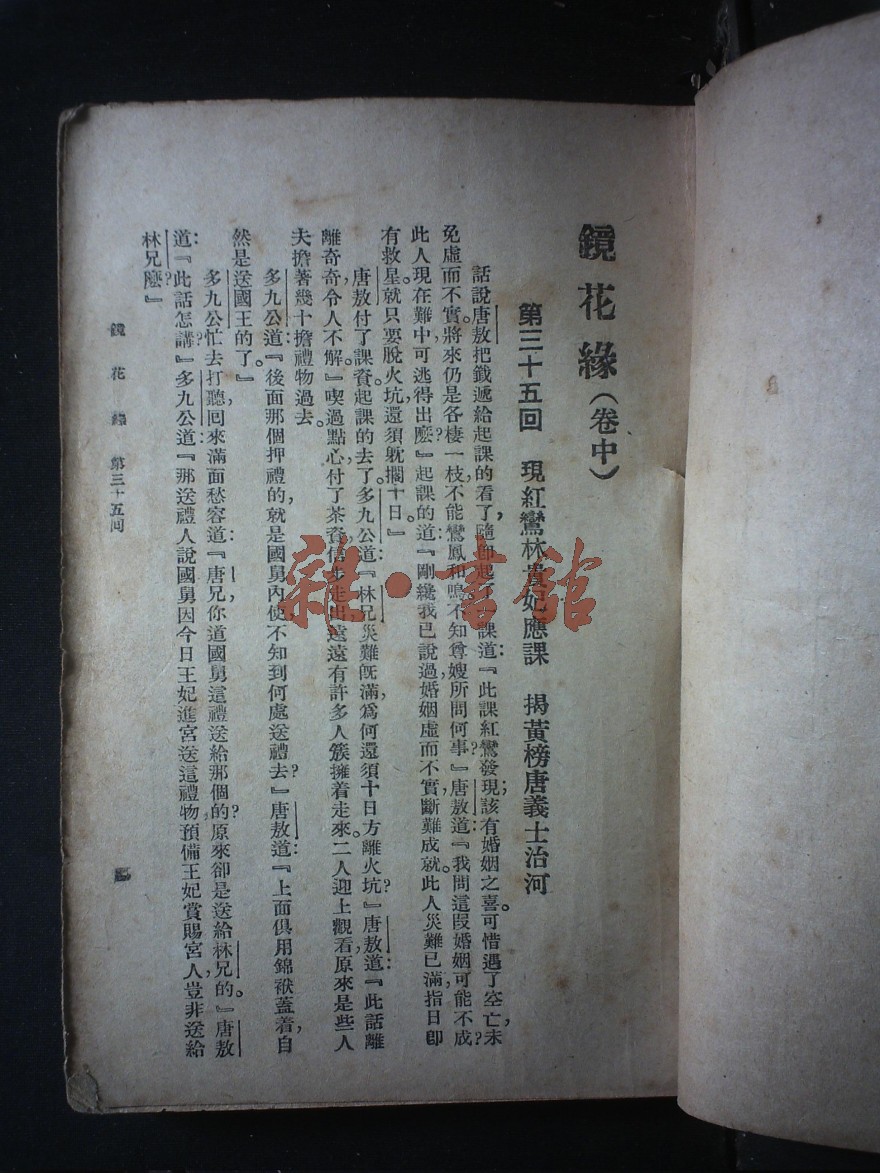 鏡花緣（卷中）
第三十五回　現紅鸞林貴妃應課　揭黃榜唐義士治河
話說唐敖把錢遞給起課的看了，隨即起了一課道：『此課紅鸞發現；該有婚姻之喜。可惜遇了空亡，未
免虛而不實。將來仍是各棲一枝，不能鸞鳳和鳴。不知尊嫂所問何事？』唐敖道：『我問這段婚姻可能不成？
此人現在難中，可逃得出麽？』起課的道：『剛纔我已說過，婚姻虛而不實，斷難成就。此人災難已滿，指日即
有救星。就只要脫火坑，還須躭擱十日。』
唐敖付了課資，起課的去了。多九公道：『林兄災難旣滿，爲何還須十日方離火坑？』唐敖道：『此話離
離奇奇，令人不解。』喫過點心，付了茶資，信步走出。遠遠有許多人簇擁着走來。二人迎上觀看，原來是些人
夫擔著幾十擔禮物過去。
多九公道：『後面那個押禮的，就是國舅內使，不知到何處送禮去？』唐敖道：『上面俱用錦袱蓋着，自
然是送國王的了。』
多九公忙去打聽，回來滿面愁容道：『唐兄，你道國舅這禮送給那個的？原來卻是送給林兄的。』唐敖
道：『此話怎講？』多九公道：『那送禮人說：國舅因今日王妃進宮，送這禮物預備王妃賞賜宮人，豈非送給
林兄麽？』
鏡花緣　第三十五回
雜·書館